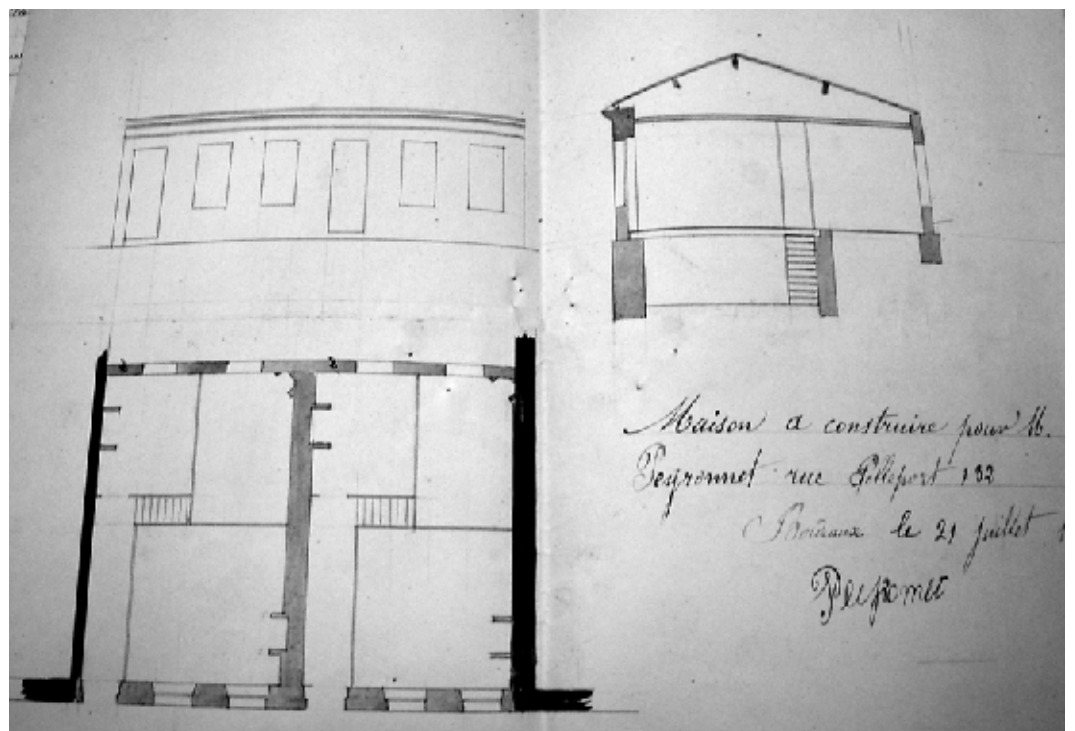 Maison a construire pour M.
Peyronnet rue Pelleport 132
Bordeaux le 21 juillet
Peyronnet